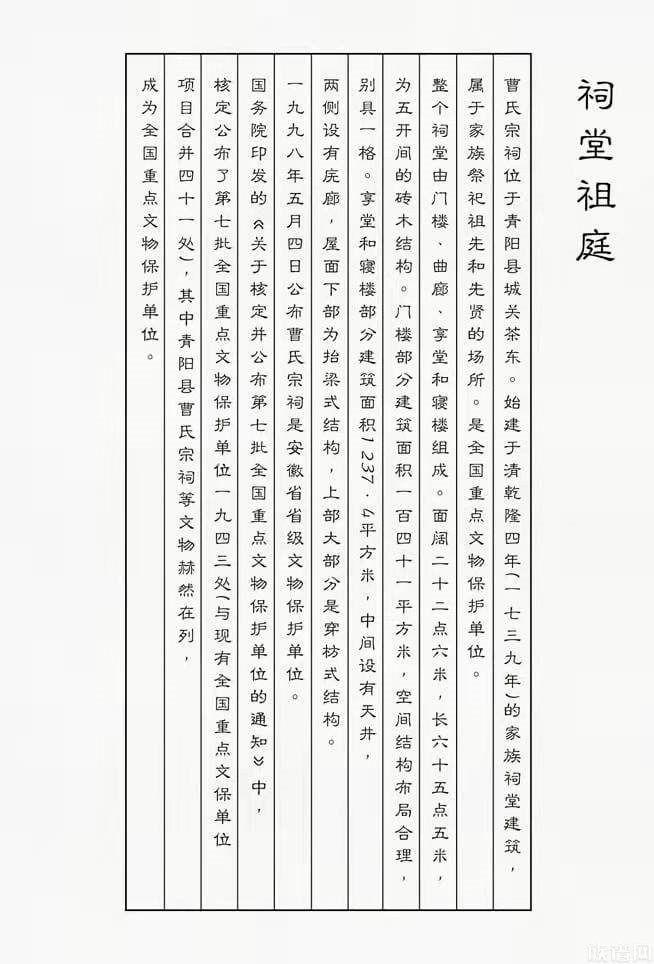 祠堂祖庭
曹氏宗祠位于青阳县城关茶东。始建于清乾隆四年(一七三九年)的家族祠堂建筑，
属于家族祭祀祖先和先贤的场所。是全国重点文物保护单位。
整个祠堂由门楼、曲廊、享堂和寝楼组成。面阔二十二点六米，长六十五点五米，
为五开间的砖木结构。门楼部分建筑面积一百四十一平方米，空间结构布局合理，
别具一格。享堂和寝楼部分建筑面积1237．4平方米，中间设有天井，
两侧设有庑廊，屋面下部为抬梁式结构，上部大部分是穿枋式结构。
一九九八年五月四日公布曹氏宗祠是安徽省省级文物保护单位。
国务院印发的《关于核定并公布第七批全国重点文物保护单位的通知》中，
核定公布了第七批全国重点文物保护单位一九四三处(与现有全国重点文保单位
项目合并四十一处)，其中青阳县曹氏宗祠等文物赫然在列，
成为全国重点文物保护单位。
族谱网